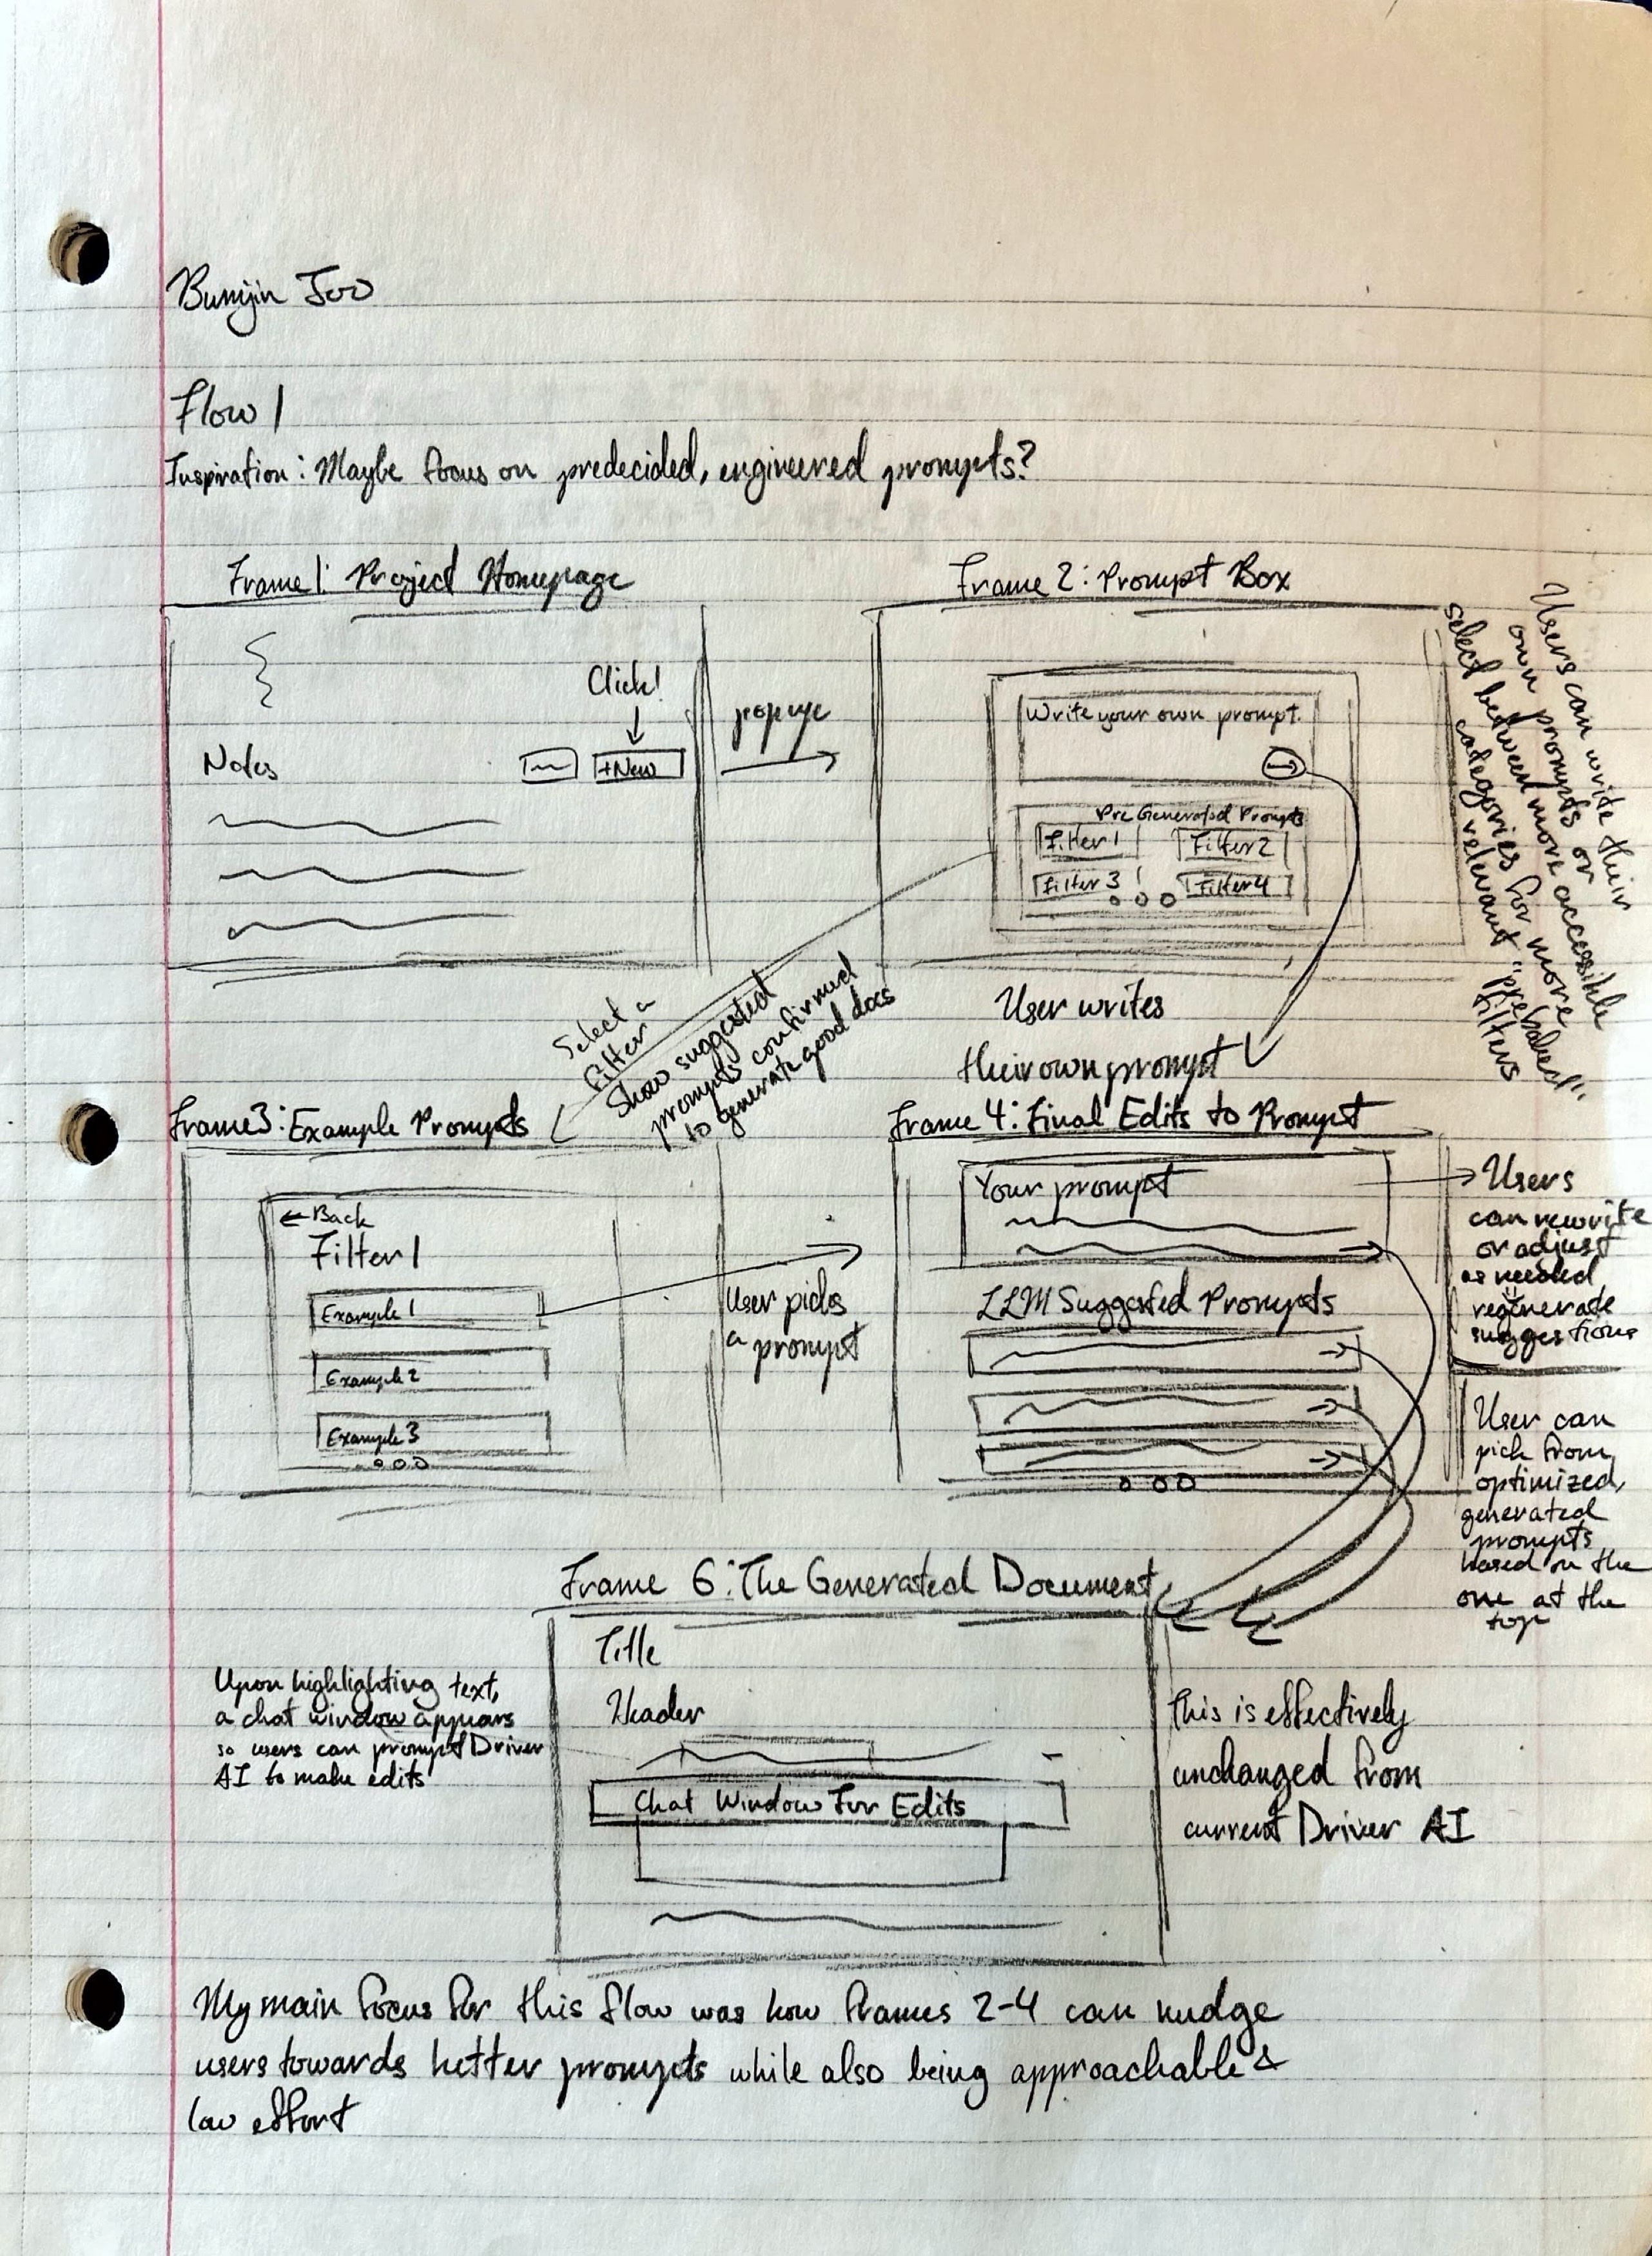 Bumjin Joo
Flow 1
Inspiration: Maybe focus on predecided, engineered prompts?
Frame 1: Project Homepage
Click!
Notes
+New
popup
Frame 2: Prompt Box
Write your own prompt.
Pre Generated Prompts
Filter 1
Filter 2
Filter 3
Filter 4
Users can write their
own prompts or
select between more accessible
categories for more
relevant "prebaked"
filters
User writes
their own prompt
Select a
filter
Show suggested
prompts confirmed
to generate good docs
Frame 3: Example Prompts
← Back
Filter 1
Example 1
Example 2
Example 3
User picks
a prompt
Frame 4: Final Edits to Prompt
Your prompt
LLM Suggested Prompts
Users
can rewrite
or adjust
as needed
regenerate
suggestions
User can
pick from
optimized,
generated
prompts
based on the
one at the
top
Frame 6: The Generated Document
Title
Header
Chat Window For Edits
Upon highlighting text,
a chat window appears
so users can prompt Driver
AI to make edits
This is effectively
unchanged from
current Driver AI
My main focus for this flow was how frames 2-4 can nudge
users towards better prompts while also being approachable &
low effort